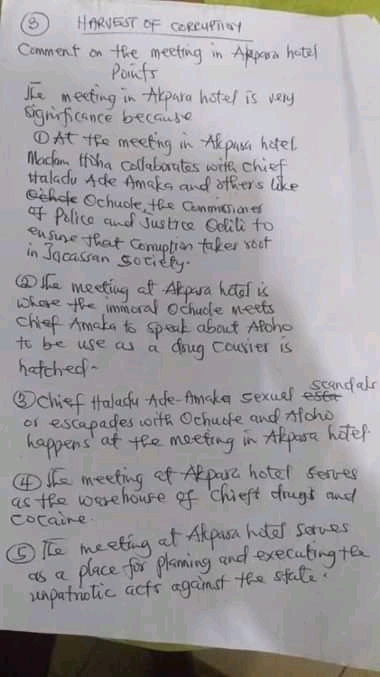 ③ HARVEST OF CORRUPTION
Comment on the meeting in Akpara hotel
Points
The meeting in Akpara hotel is very
significance because
① At the meeting in Akpara hotel.
Madam Hoha Collaborates with chief
Haladu Ade Amaka and others like
Ochuole, the Commissioner
of Police and Justice Odili to
ensure that Corruption takes root
in Jacassan Society.
② The meeting at Akpara hotel is
where the immoral Ochuole meets
Chief Amaka to speak about Aloho
to be use as a drug Courier is
hatched-
③ Chief Haladu Ade-Amaka sexual scandals
or escapades with Ochuole and Aloho
happens at the meeting in Akpara hotel
④ The meeting at Akpara hotel serves
as the warehouse of Chiefs drugs and
cocaine.
⑤ The meeting at Akpara hotel serves
as a place for planning and executing the
unpatriotic acts against the state.